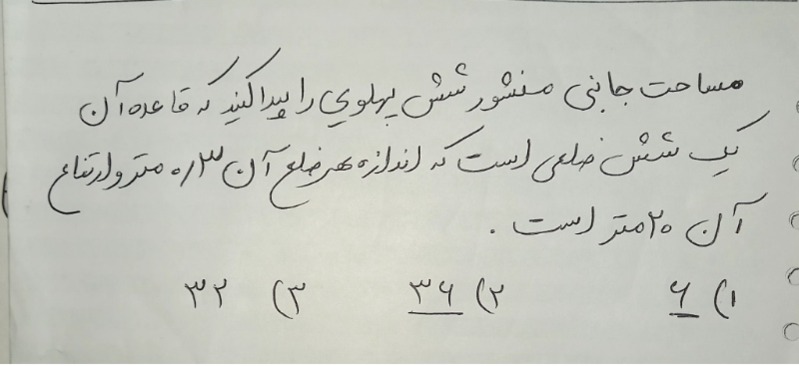 مساحت جانبی منشور شش پهلوی را پیدا کنید که قاعده آن
یک شش ضلعی است که اندازه هر ضلع آن ۰/۳ متر و ارتفاع
آن ۲۰ متر است .
۱) ۶ ۲) ۳۶ ۳) ۳۲